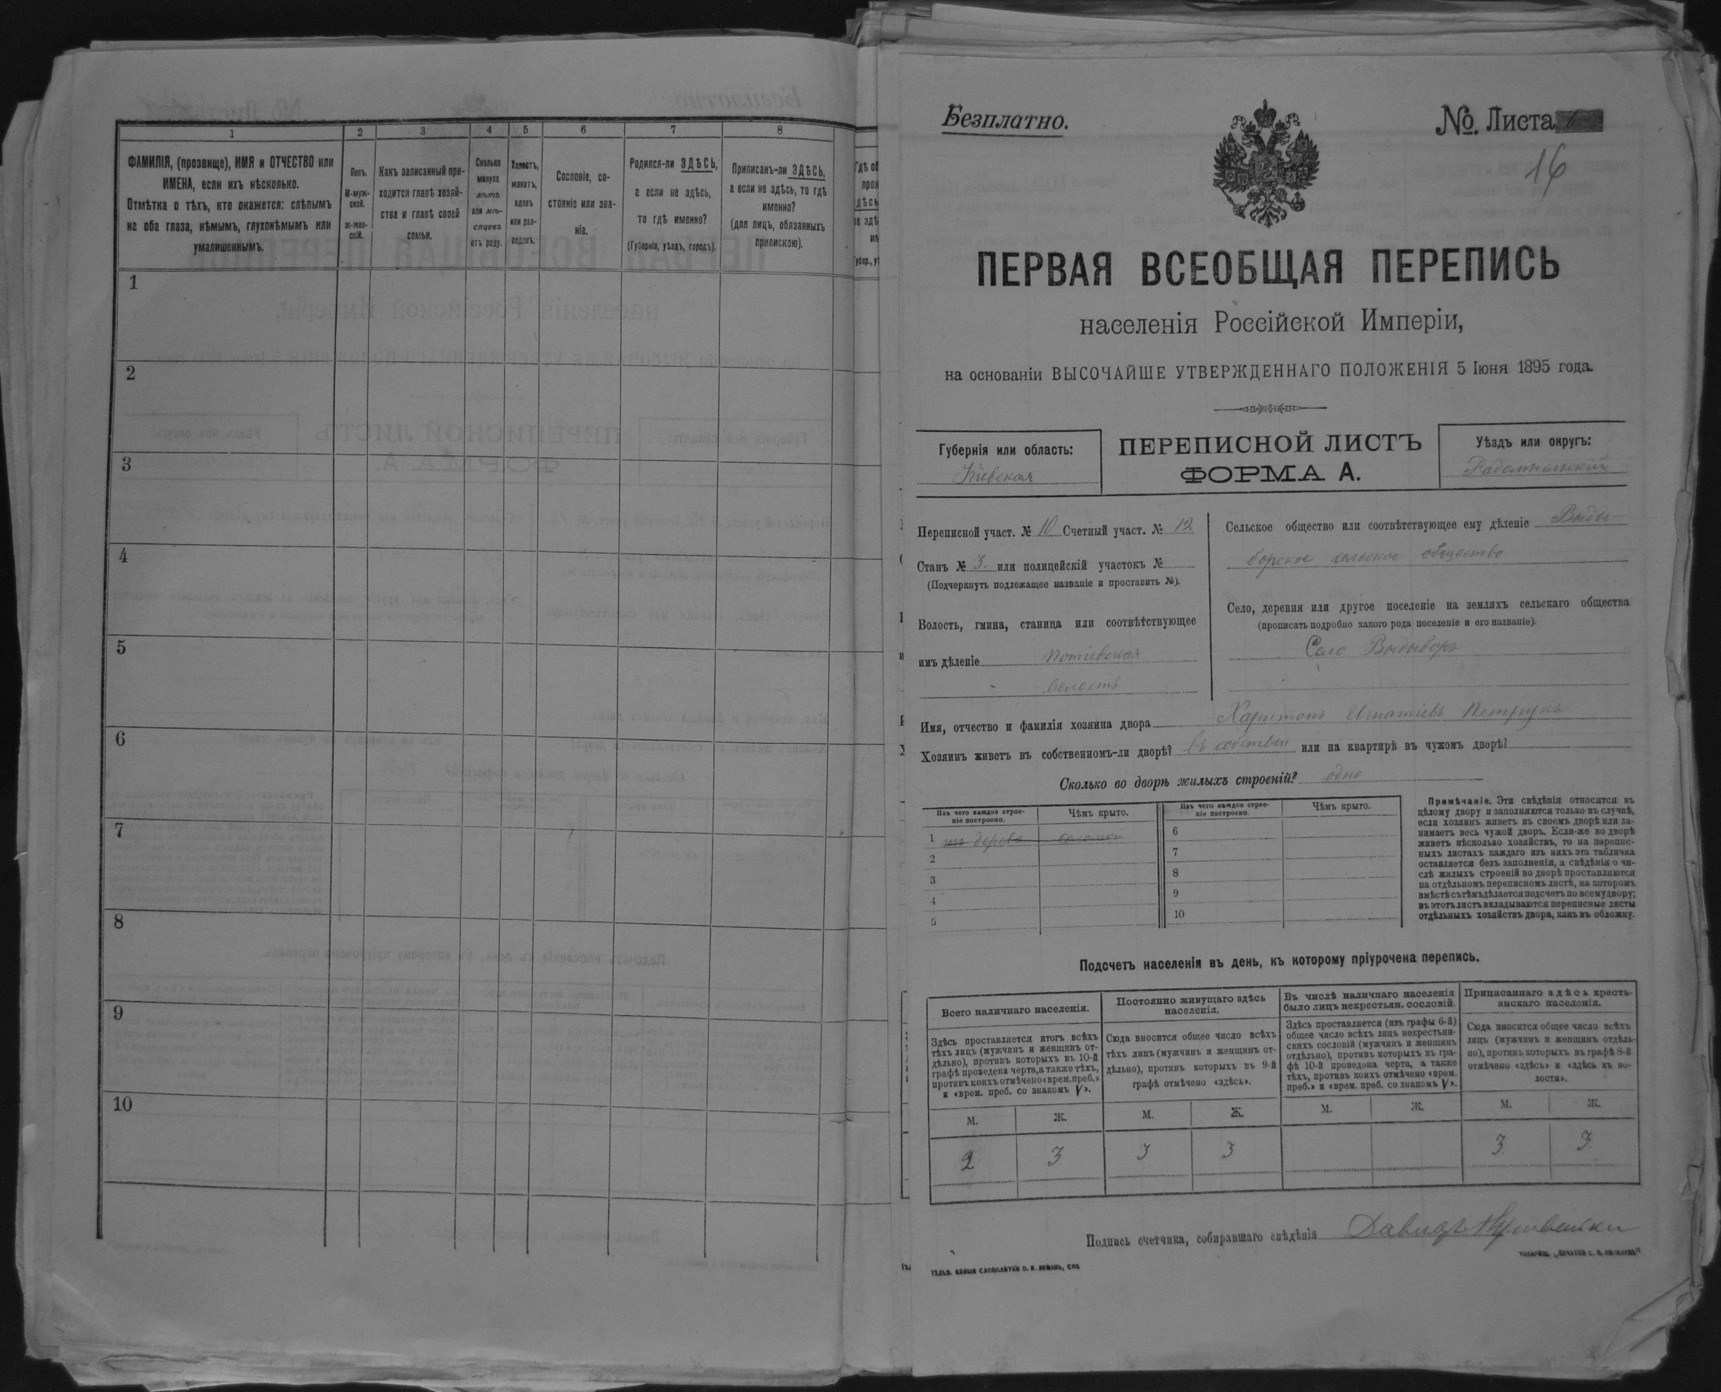 1
2
3
4
5
6
7
8
ФАМИЛІЯ, (прозвище), ИМЯ и ОТЧЕСТВО или
ИМЕНА, если ихъ нѣсколько.
Отмѣтка о тѣхъ, кто окажется: слѣпымъ
на оба глаза, нѣмымъ, глухонѣмымъ или
умалишеннымъ.
Полъ.
М-муж-
ской.
Ж-жен-
скій.
Какъ записанный при-
ходится главѣ хозяй-
ства и главѣ своей
семьи.
Сколько
минуло
лѣтъ
или мѣ-
сяцевъ
отъ роду.
Холостъ,
женатъ,
вдовъ
или раз-
веденъ.
Сословіе, со-
стояніе или зва-
ніе.
Родился-ли ЗДѢСЬ,
а если не здѣсь,
то гдѣ именно?
(Губернія, уѣздъ, городъ).
Приписанъ-ли ЗДѢСЬ,
а если не здѣсь, то гдѣ
именно?
(для лицъ, обязанныхъ
припискою).
1
2
3
4
5
6
7
8
9
10
Безплатно.
№. Листа
16
ПЕРВАЯ ВСЕОБЩАЯ ПЕРЕПИСЬ
населенія Россійской Имперіи,
на основаніи ВЫСОЧАЙШЕ УТВЕРЖДЕННАГО ПОЛОЖЕНІЯ 5 Іюня 1895 года.
Губернія или область:
Кіевская
ПЕРЕПИСНОЙ ЛИСТЪ
ФОРМА А.
Уѣздъ или округъ:
Радомысльскій
Переписной участ. № 10 Счетный участ. № 12
Станъ № 3. или полицейскій участокъ №
(Подчеркнуть подлежащее названіе и проставить №).
Волость, гмина, станица или соотвѣтствующее
имъ дѣленіе Потіевская
волость
Сельское общество или соотвѣтствующее ему дѣленіе Выды-
борское сельское общество
Село, деревня или другое поселеніе на земляхъ сельскаго общества
(прописать подробно какого рода поселеніе и его названіе).
Село Выдыборъ
Имя, отчество и фамилія хозяина двора Харитонъ Игнатіевъ Петрукъ
Хозяинъ живетъ въ собственномъ-ли дворѣ? въ собствен или на квартирѣ въ чужомъ дворѣ?
Сколько во дворѣ жилыхъ строеній? одно
Изъ чего каждое строе-
ніе построено.
Чѣмъ крыто.
Изъ чего каждое строе-
ніе построено.
Чѣмъ крыто.
1 изъ дерева соломой
2
3
4
5
6
7
8
9
10
Примѣчаніе. Эти свѣдѣнія относятся къ
цѣлому двору и заполняются только въ случаѣ,
если хозяинъ живетъ въ своемъ дворѣ или за-
нимаетъ весь чужой дворъ. Если-же во дворѣ
живетъ нѣсколько хозяйствъ, то на перепис-
ныхъ листахъ каждаго изъ нихъ эта табличка
оставляется безъ заполненія, а свѣдѣнія о чи-
слѣ жилыхъ строеній во дворѣ проставляются
на отдѣльномъ переписномъ листѣ, на которомъ
вмѣстѣ съ тѣмъ дѣлается подсчетъ по всему двору;
въ этотъ листъ вкладываются переписные листы
отдѣльныхъ хозяйствъ двора, какъ въ обложку.
Подсчетъ населенія въ день, къ которому пріурочена перепись.
Всего наличнаго населенія.
Постоянно живущаго здѣсь
населенія.
Въ числѣ наличнаго населенія
было лицъ некрестьян. сословій.
Приписаннаго здѣсь кресть-
янскаго населенія.
Здѣсь проставляется итогъ всѣхъ
тѣхъ лицъ (мужчинъ и женщинъ от-
дѣльно), противъ которыхъ въ 10-й
графѣ проведена черта, а также тѣхъ,
противъ коихъ отмѣчено «врем. преб.»
и «врем. преб. со знакомъ V».
Сюда вносится общее число всѣхъ
тѣхъ лицъ (мужчинъ и женщинъ от-
дѣльно), противъ которыхъ въ 9-й
графѣ отмѣчено «здѣсь».
Здѣсь проставляется (изъ графы 6-й)
общее число всѣхъ лицъ некрестьян-
скихъ сословій (мужчинъ и женщинъ
отдѣльно), противъ которыхъ въ гра-
фѣ 10-й проведена черта, а также
тѣхъ, противъ коихъ отмѣчено «врем.
преб.» и «врем. преб. со знакомъ V».
Сюда вносится общее число всѣхъ
лицъ (мужчинъ и женщинъ отдѣль-
но), противъ которыхъ въ графѣ 8-й
отмѣчено «здѣсь» и «здѣсь въ во-
лости».
М. Ж. М. Ж. М. Ж. М. Ж.
2 3 3 3 3 3
Подпись счетчика, собиравшаго свѣдѣнія Давидъ